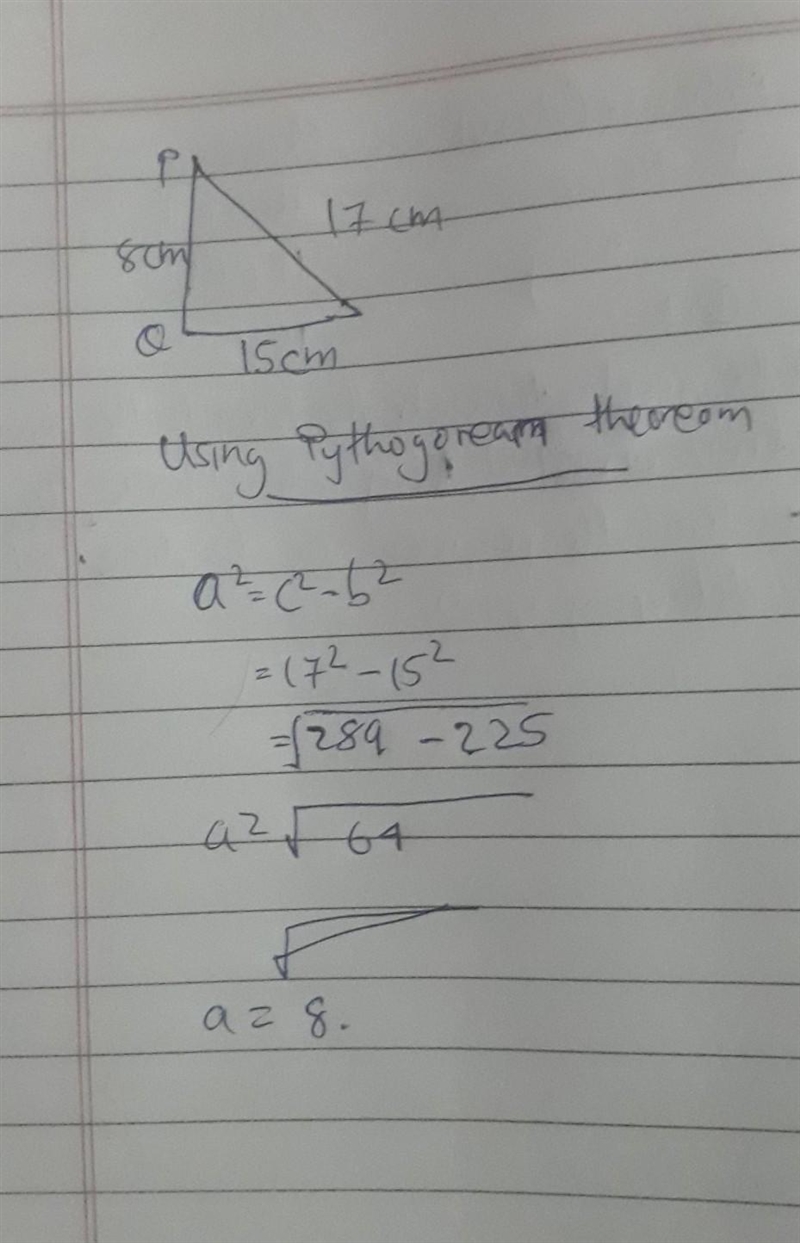 P
17 cm
8cm
Q
15cm
Using Pythogoream theoreom
a²=c²-b²
=17²-15²
=√289 -225
a=√64
a= 8.